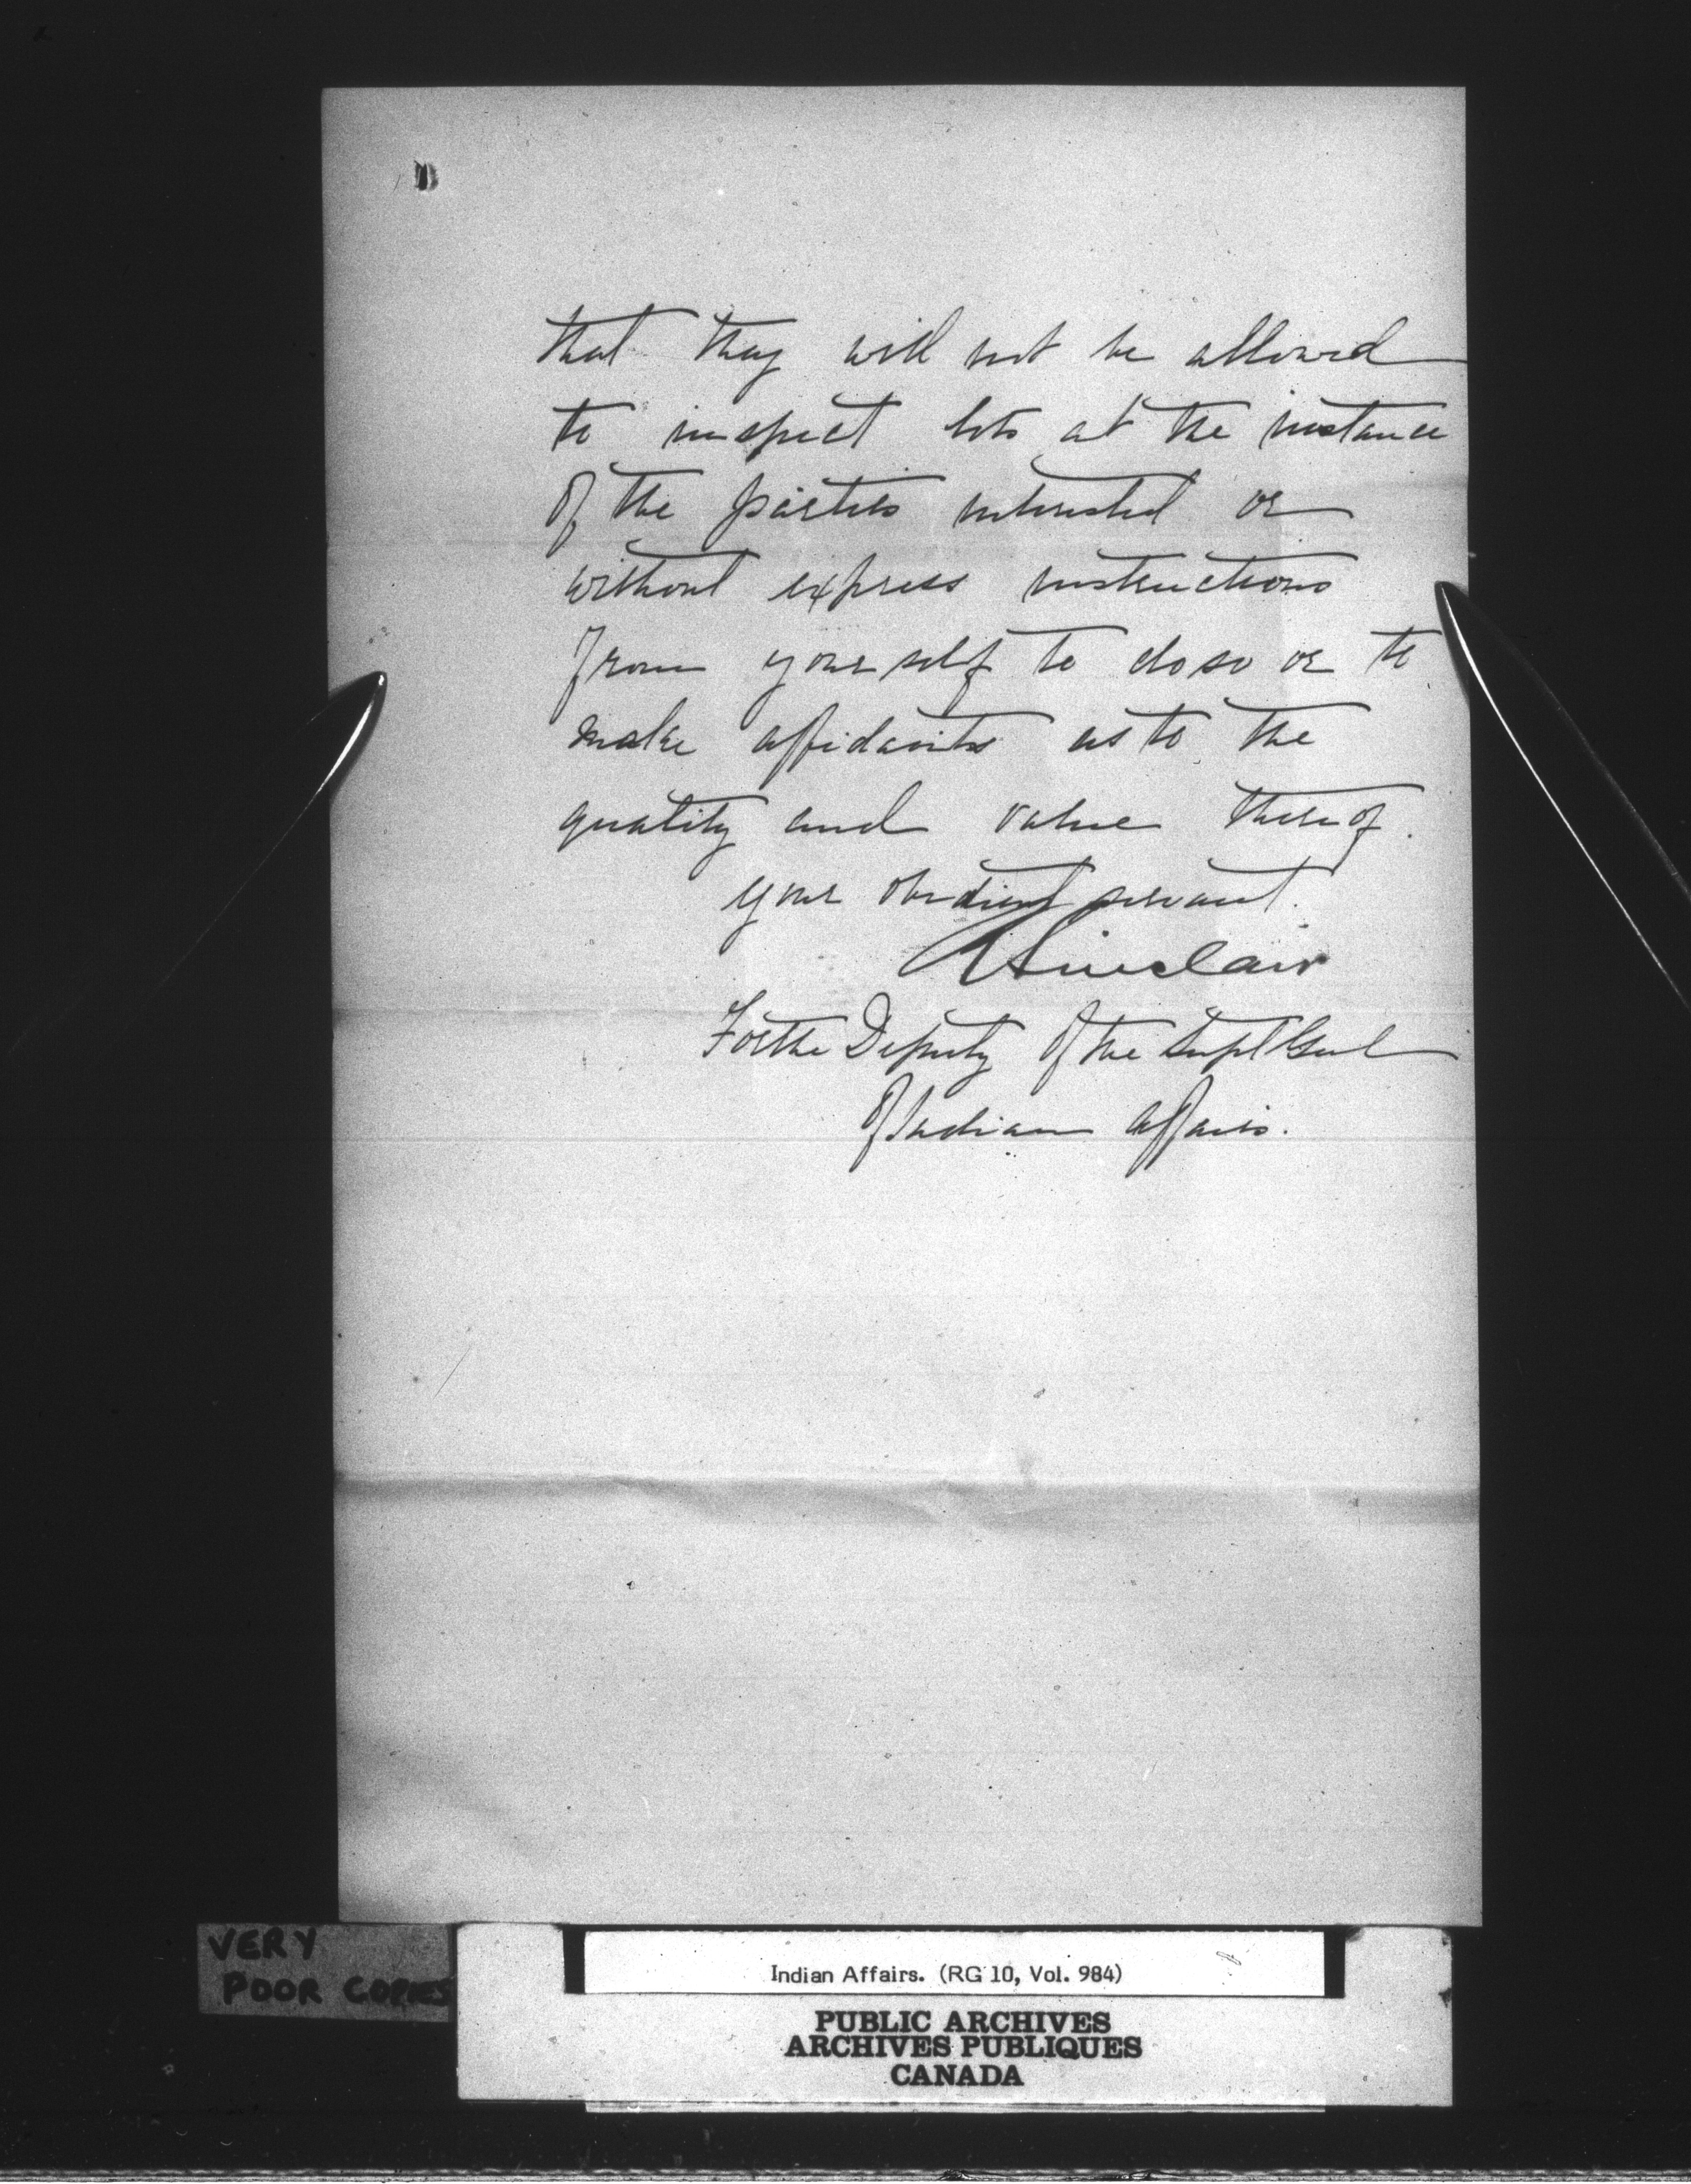 that they will not be allowed
to inspect lots at the instance
of the parties interested or
without express instructions
from yourself to do so or to
make affidavits as to the
quality and value thereof.
your obedient servant.
Sinclair
For the Deputy of the Supt Genl
of Indian Affairs.
VERY
POOR COPIES
Indian Affairs. (RG 10, Vol. 984)
PUBLIC ARCHIVES
ARCHIVES PUBLIQUES
CANADA